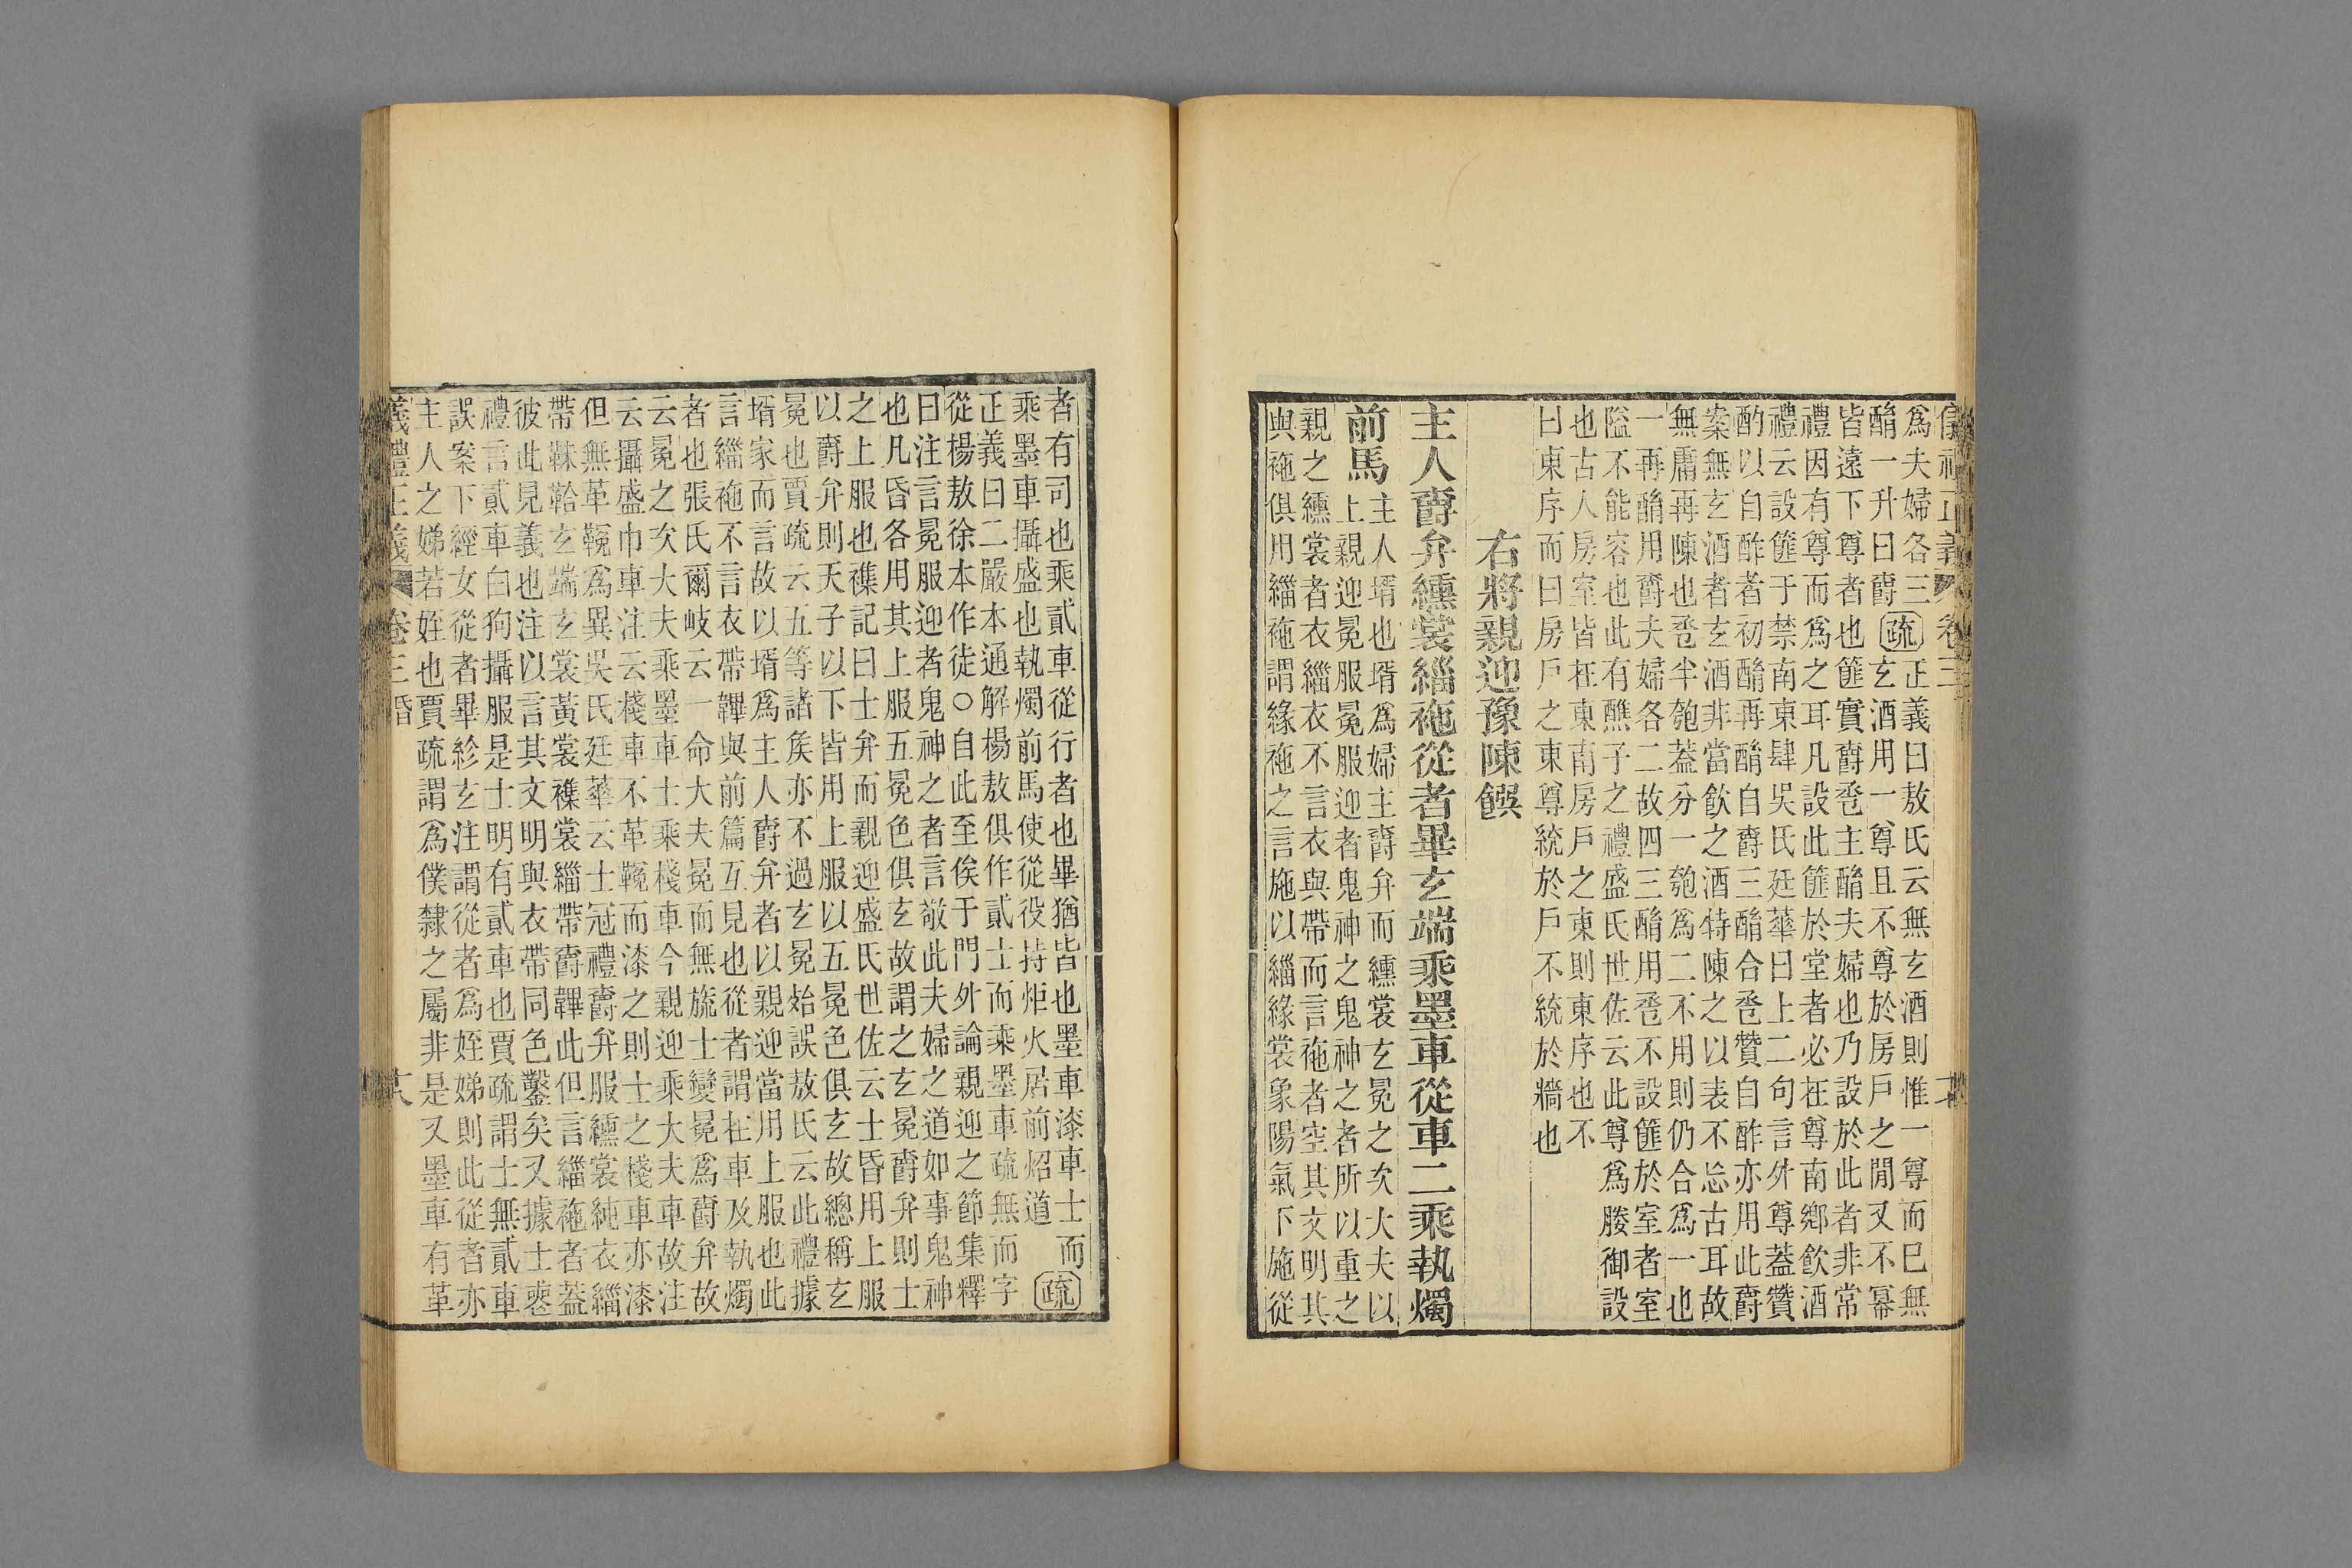 爲夫婦各三
酳一升曰爵疏正義曰敖氏云無玄酒則惟一尊而已無
玄酒用一尊且不尊於房戶之閒又不冪
皆遠下尊者也篚實爵卺主酳夫婦也乃設於此者非常
禮因有尊而爲之耳凡設此篚於堂者必在尊南鄉飲酒
禮云設篚于禁南東肆吳氏廷華曰上二句言外尊蓋贊
酌以自酢者初酳再酳自爵三酳合卺贊自酢亦用此爵
案無玄酒者玄酒非當飲之酒特陳之以表不忘古耳故
無庸再陳也卺半匏蓋分一匏爲二不用則仍合爲一也
一再酳用爵夫婦各二故四三酳用卺不設篚於室者室
隘不能容也此有醮子之禮盛氏世佐云此尊爲媵御設
也古人房室皆在東南房戶之東則東序也不
曰東序而曰房戶之東尊統於戶不統於牆也
右將親迎豫陳饌
主人爵弁纁裳緇袘從者畢玄端乘墨車從車二乘執燭
前馬
主人壻也壻爲婦主爵弁而纁裳玄冕之次大夫以
上親迎冕服冕服迎者鬼神之鬼神之者所以重之
親之纁裳者衣緇衣不言衣與帶而言袘者空其文明其
與袘俱用緇袘謂緣袘之言施以緇緣裳象陽氣下施從
者有司也乘貳車從行者也畢猶皆也墨車漆車士而
乘墨車攝盛也執燭前馬使從役持炬火居前炤道疏
正義曰二嚴本通解楊敖俱作貳士而乘墨車疏無而字
從楊敖徐本作徒○自此至俟于門外論親迎之節集釋
曰注言冕服迎者鬼神之者言敬此夫婦之道如事鬼神
也凡昏各用其上服五冕色俱玄故謂之玄冕爵弁則士
之上服也襍記曰士弁而親迎盛氏世佐云士昏用上服
以爵弁則天子以下皆用上服以五冕色俱玄故總稱玄
冕也賈疏云五等諸矦亦不過玄冕始誤敖氏云此禮據
壻家而言故以壻爲主人爵弁者以親迎當用上服也此
言緇袘不言衣帶韠與前篇互見也從者謂在車及執燭
者也張氏爾岐云一命大夫冕而無旒士變冕爲爵弁故
云冕之次大夫乘墨車士乘棧車今親迎乘大夫車故注
云攝盛巾車注云棧車不革鞔而漆之則士之棧車亦漆
但無革鞔爲異吳氏廷華云士冠禮爵弁服纁裳純衣緇
帶韎韐玄端玄裳黃裳襍裳緇帶爵韠此但言緇袘者蓋
彼此見義也注以言其文明與衣帶同色鑿矣又據士喪
禮言貳車白狗攝服是士明有貳車也賈疏謂士無貳車
誤案下經女從者畢袗玄注謂從者爲姪娣則此從者亦
主人之娣若姪也賈疏謂爲僕隸之屬非是又墨車有革